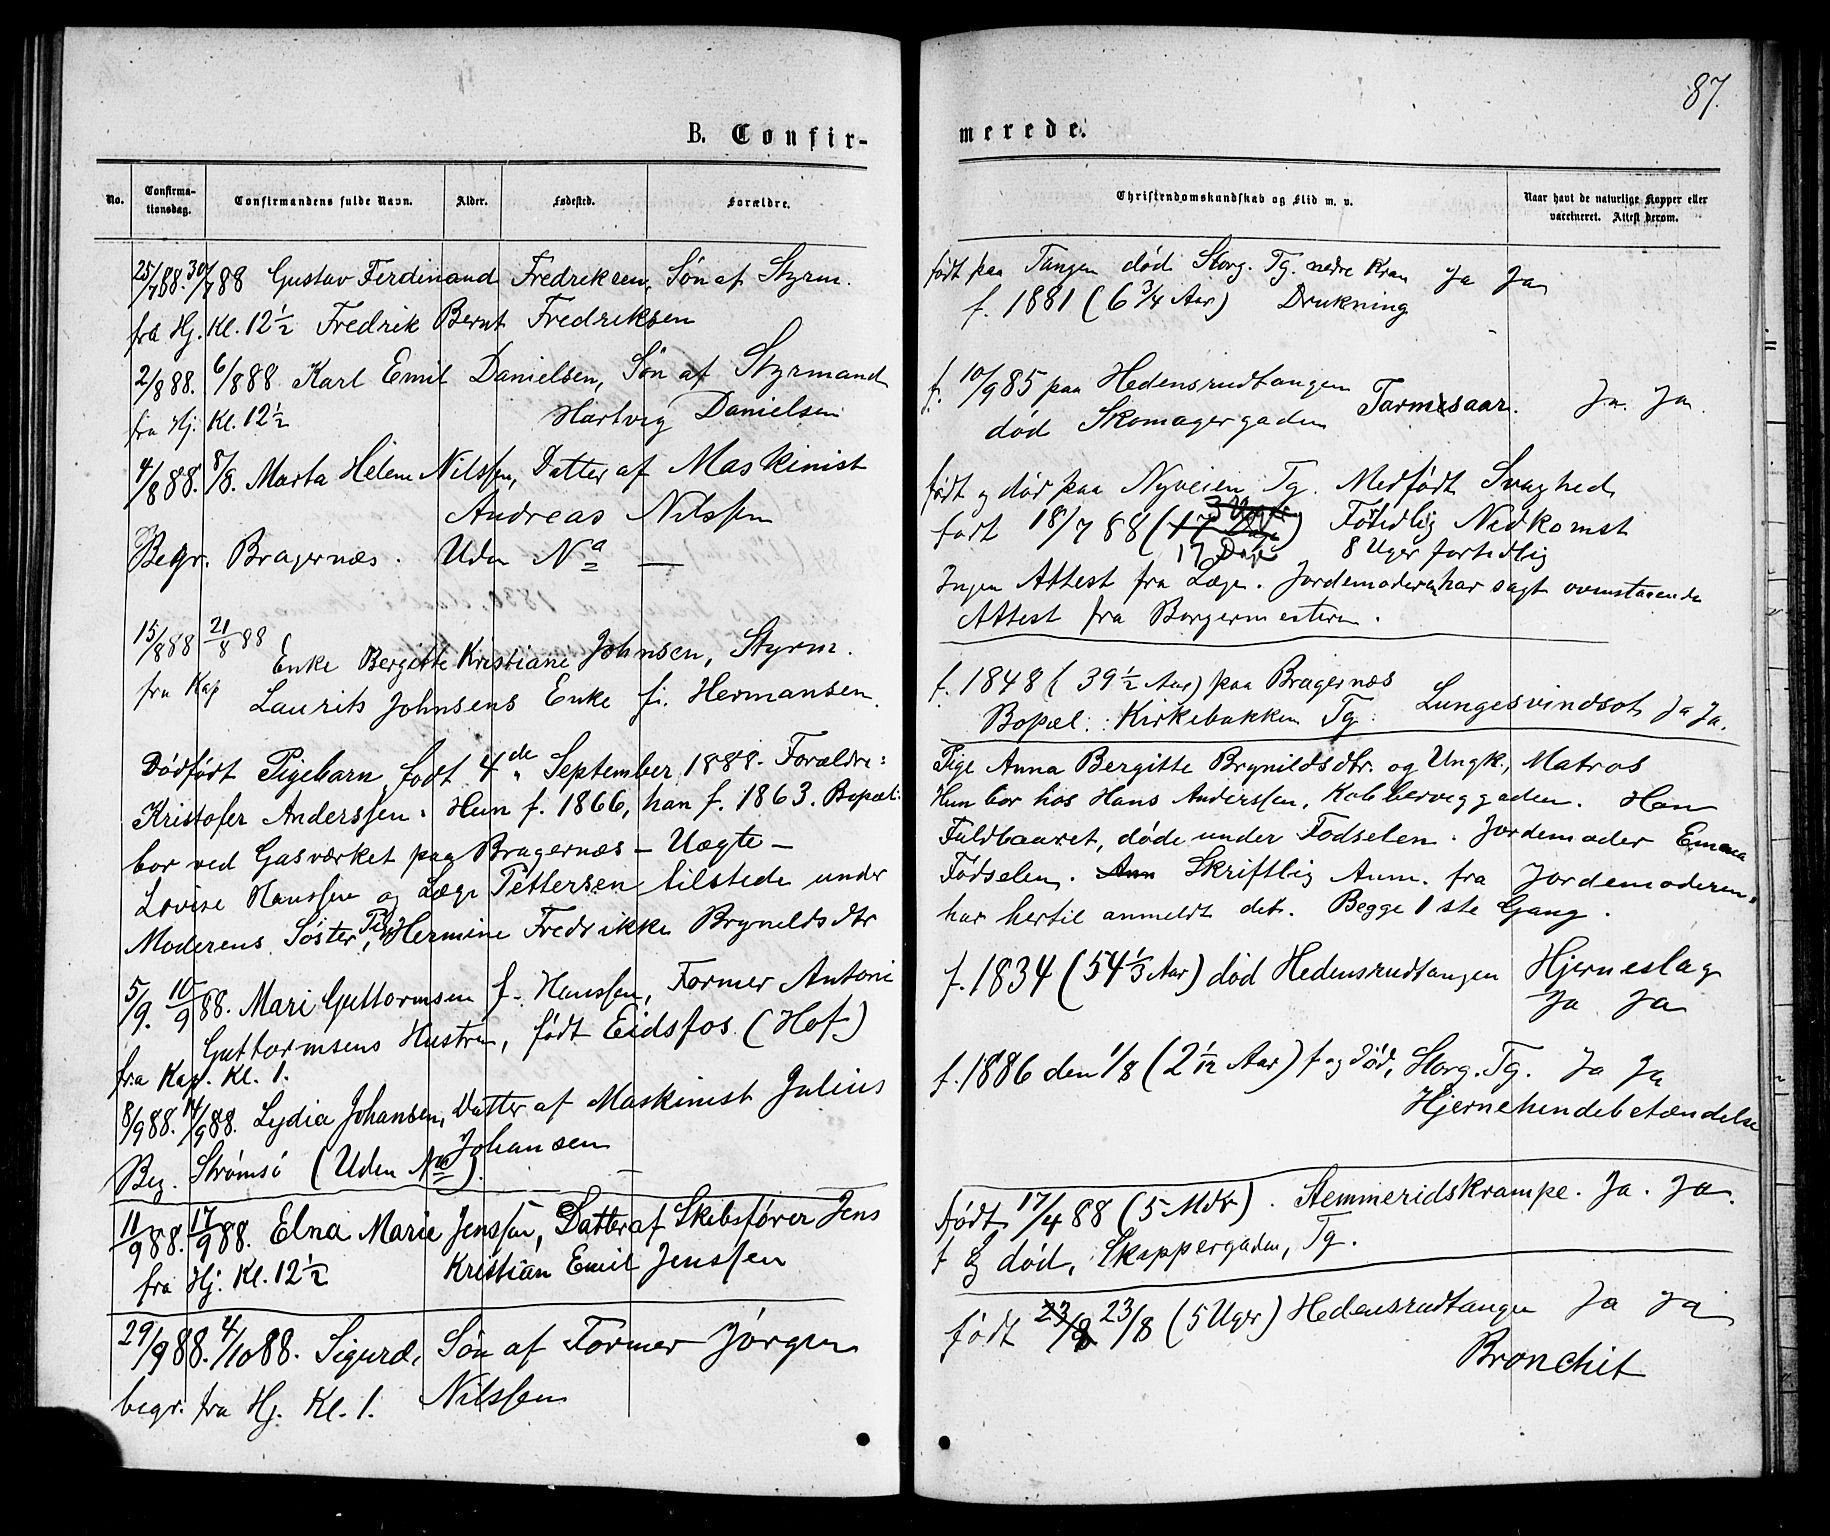 B. Confir-
No.
Confirma-
tionsdag.
Confirmandens fulde Navn.
Alder.
Fødested.
Forældre.
25/7 88. 30/7 88 Gustav Ferdinand Fredriksen, Søn af Styrm.
fra Hj. Kl. 12 1/2 Fredrik Bernt Fredriksen
2/8 88. 6/8 88 Karl Emil Danielsen, Søn af Styrmand
fra Hj. Kl. 12 1/2 Hartvig Danielsen
4/8 88. 8/8. Marta Helene Nilssen, Datter af Maskinist
Andreas Nilssen
Begr. Bragernæs. Uden Na —
15/8 88 21/8 88
Enke Bergitte Kristiane Johnsen, Styrm.
fra Kap Laurits Johnsens Enke f. Hermansen.
Dødfødt Pigebarn, født 4de September 1888. Forældre:
Kristofer Anderssen. Hun f. 1866, han f. 1863. Bopæl:
bor ved Gasværket paa Bragernæs — Uægte —
Lovise Hanssen og Læge Pettersen tilstede under
Moderens Søster, Pige Hermine Fredrikke Brynildsdtr
5/9. 10/9 88. Mari Guttormsen f. Hanssen, Former Antoni
Guttormsens Hustru, født Eidsfos (Hof)
fra Kap. Kl. 1.
8/9 88. 14/9 88. Lydia Johansen, Datter af Maskinist Julius
Johansen
Beg. Strømsø (Uden Na). —
11/9 88. 17/9 88. Elna Marie Jenssen, Datter af Skibsfører Jens
fra Hj. Kl. 12 1/2 Kristian Emil Jenssen
29/9 88. 4/10 88. Sigurd, Søn af Former Jørgen
begr. fra Hj. Kl. 1. Nilssen
87.
merede.
Christendomskundskab og Flid m. v.
Naar havt de naturlige Kopper eller
vaccineret. Attest derom.
født paa Tangen død Storg. Tg. nedre Kran Ja Ja
f. 1881 (6 3/4 Aar) Drukning
f. 10/9 85 paa Hedensrudtangen
død Skomagergaden Tarmsaar. Ja. Ja.
født og død paa Nyveien Tg. Medført Svaghed
født 18/7 88 (17 Dage) Førtidlig Nedkomst
17 Dage 8 Uger fortidlig
Ingen Attest fra Læge. Jordemoderen har sagt ovenstaaende
Attest fra Borgermesteren.
f. 1848 (39 1/2 Aar) paa Bragernæs
Bopæl: Kirkebakken Tg. Lungesvindsot Ja Ja.
Pige Anna Bergitte Brynildsdtr. og Ungk., Matros
Hun bor hos Hans Anderssen, Kobberviggaden. Han
Fuldbaaret, døde under Fødselen. Jordemoder Emma
Fødselen. Ann Skriftlig Anm. fra Jordemoderen.
har hertil anmeldt det. Begge 1ste Gang.
f. 1834 (54 1/3 Aar) død Hedensrudtangen Hjerneslag
Ja Ja
f. 1886 den 1/8 (2 1/12 Aar) f og død, Storg. Tg. Ja Ja
Hjernehindebetændelse
født 17/4 88 (5 Mdr). Stemmeridskrampe. Ja. Ja.
f og død, Skippergaden, Tg.
født 23/8 23/8 (5 Uger) Hedensrudtangen Ja Ja
Bronchit